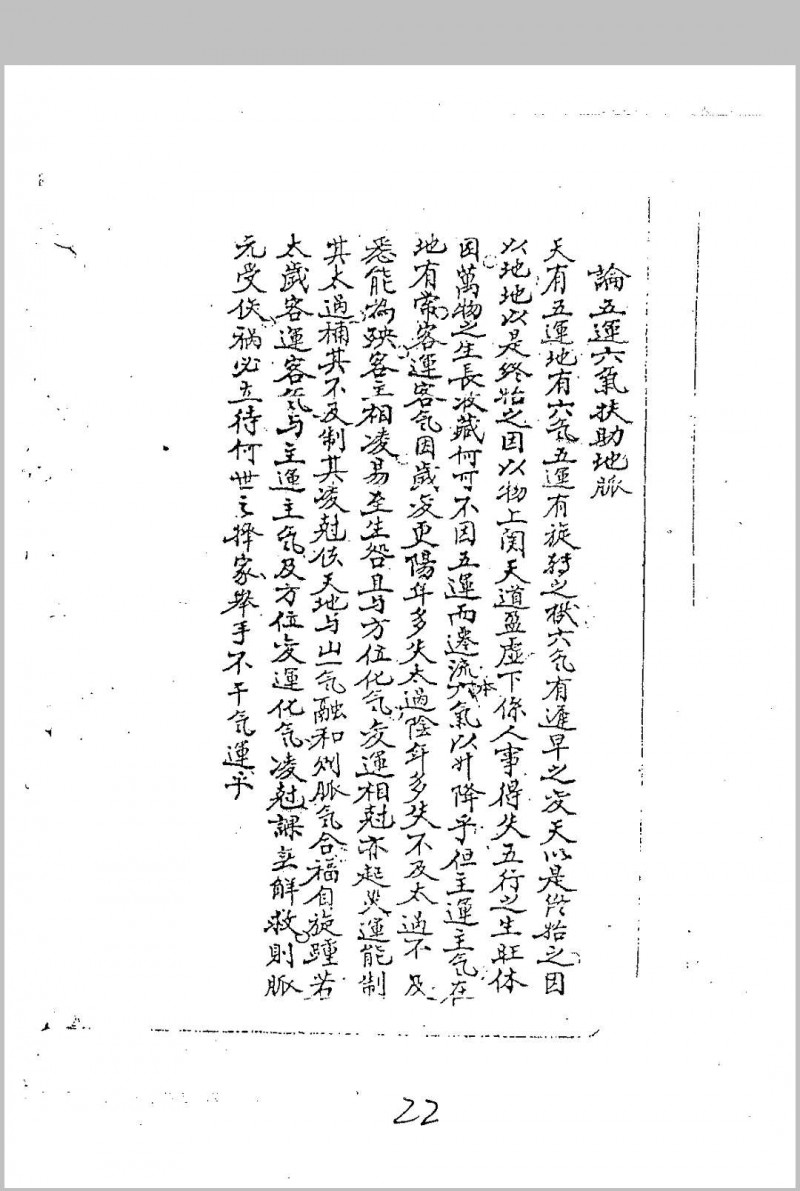 論五運六氣扶助地脈
天有五運地有六气五運有旋轉之機六气有遲早之变天以是終始之因
以地地以是終始之因以物上関天道盈虛下係人事得失五行之生旺休
因萬物之生長收藏何可不因五運而遷流六氣以升降乎但主運主气在
地有常客運客气因歲变更陽年多失太過陰年多失不及太過不及
悉能為殃客主相凌易至生咎且与方位化气变運相尅亦起災運能制
其太過補其不及制其凌尅使天地与山一气融和則脈气合福自旋踵若
太歲客運客气与主運主气及方位变運化气凌尅課無解救則脈
元受佚禍必立待何世之擇家舉手不干气運乎
22